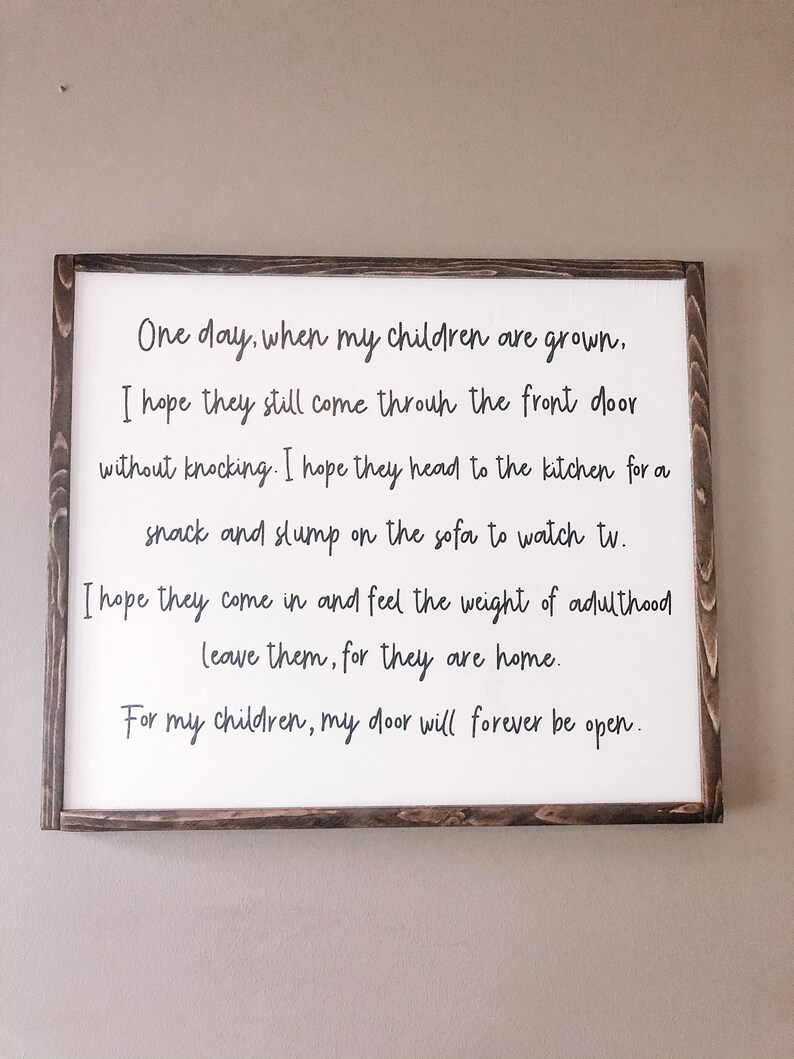 One day, when my children are grown,
I hope they still come throuh the front door
without knocking. I hope they head to the kitchen for a
snack and slump on the sofa to watch tv.
I hope they come in and feel the weight of adulthood
leave them, for they are home.
For my children, my door will forever be open.